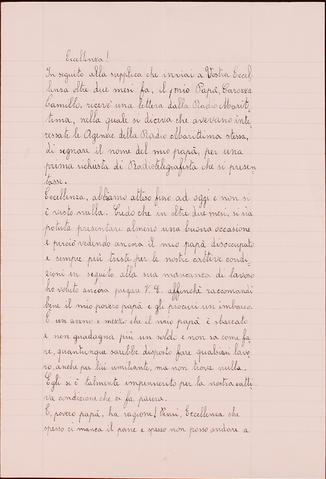 Eccellenza!
In seguito alla supplica che inviai a Vostra Eccel-
lenza oltre due mesi fa, il mio Papà,
Camillo, riceve una lettera dalla Radio Marit-
tima, nella quale si diceva che avevano inte-
ressate le Agenzie della Radio Marittima stessa,
di segnare il nome del mio papà, per una
prima richiesta di Radiotelegrafista che si presen-
tasse.
Eccellenza, abbiamo atteso fino ad oggi e non si
è visto nulla. Credo che in oltre due mesi, si sia
potuta presentare almeno una buona occasione
e perciò vedendo ancora il mio papà disoccupato
e sempre più triste per le nostre cattive condi-
zioni in seguito alla sua mancanza di lavoro
ho voluto ancora pregare V. E. affinchè raccomandi
bene il mio povero papà e gli procuri un imbarco.
È un anno e mezzo che il mio papà è sbarcato
e non guadagna più un soldo e non sa come fa-
re, quantunque sarebbe disposto fare qualsiasi lavo-
ro, anche più umiliante, ma non trova nulla.
Egli si è talmente impensierito per la nostra catti-
va condizione che ci fa paura.
E, povero papà, ha ragione! Pensi, Eccellenza che
spesso ci manca il pane e spesso non posso andare a